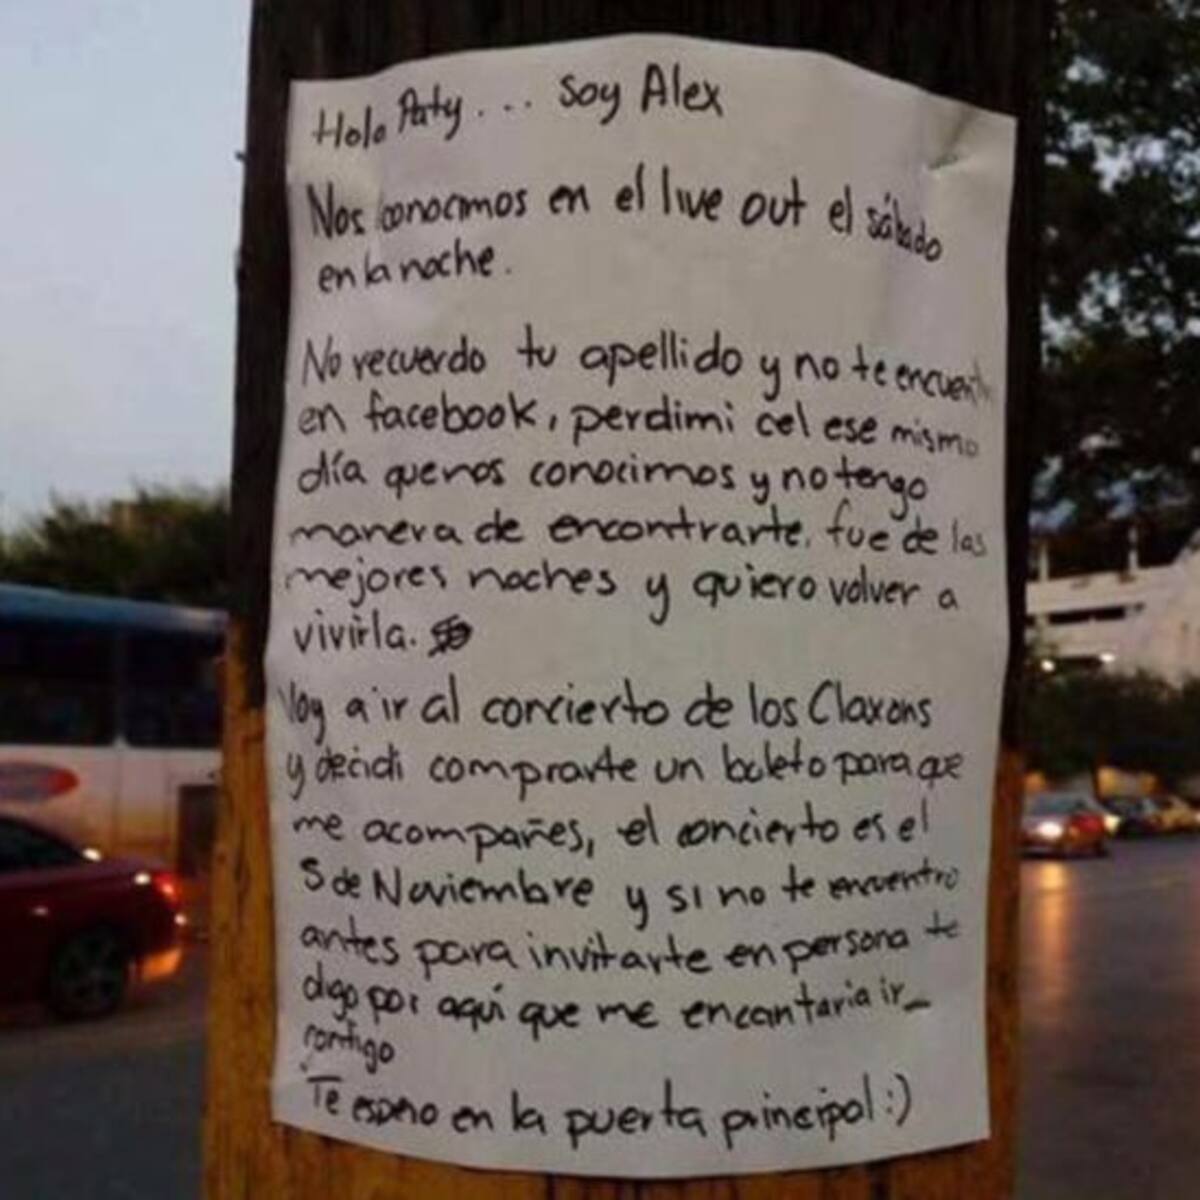 Hola Paty.... Soy Alex
Nos conocimos en el live out el sábado
en la noche.
No recuerdo tu apellido y no te encuent
en facebook, perdi mi cel ese mismo
día que nos conocimos y no tengo
manera de encontrarte. fue de las
mejores noches y quiero volver a
vivirla.
Voy a ir al concierto de los Claxons
y decidi comprarte un boleto para que
me acompañes, el concierto es el
5 de Noviembre y si no te encuentro
antes para invitarte en persona te
digo por aquí que me encantaria ir
contigo
Te espero en la puerta principal :)